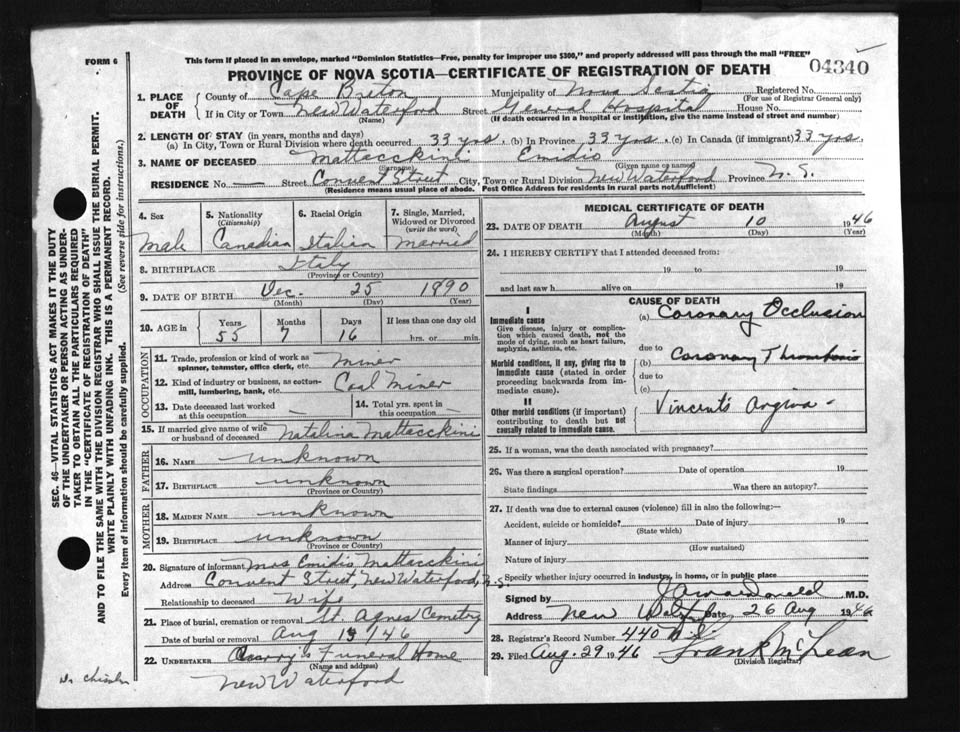 This form if placed in an envelope, marked "Dominion Statistics—Free, penalty for improper use $300," and properly addressed will pass through the mail "FREE"
FORM 6
PROVINCE OF NOVA SCOTIA—CERTIFICATE OF REGISTRATION OF DEATH 04340
1. PLACE OF DEATH County of Cape Breton Municipality of Nova Scotia Registered No.
(For use of Registrar General only)
If in City or Town New Waterford Street General Hospital House No.
(Name) (If death occurred in a hospital or institution, give the name instead of street and number)
2. LENGTH OF STAY (in years, months and days)
(a) In City, Town or Rural Division where death occurred 33 yrs. (b) In Province 33 yrs. (c) In Canada (if immigrant) 33 yrs.
3. NAME OF DECEASED Mattacckini Emidio
(Surname) (Given name or names)
RESIDENCE No. — Street Convent Street City, Town or Rural Division New Waterford Province N. S.
(Residence means usual place of abode. Post Office Address for residents in rural parts not sufficient)
4. Sex 5. Nationality (Citizenship) 6. Racial Origin 7. Single, Married, Widowed or Divorced (write the word)
Male Canadian Italian Married
8. BIRTHPLACE Italy
(Province or Country)
9. DATE OF BIRTH Dec. 25 1890
(Month) (Day) (Year)
10. AGE in Years Months Days If less than one day old
55 7 16 hrs. or min.
OCCUPATION
11. Trade, profession or kind of work as spinner, teamster, office clerk, etc. Miner
12. Kind of industry or business, as cotton-mill, lumbering, bank, etc. Coal Miner
13. Date deceased last worked at this occupation —
14. Total yrs. spent in this occupation —
15. If married give name of wife or husband of deceased Natalina Mattacckini
FATHER
16. NAME unknown
17. BIRTHPLACE unknown
(Province or Country)
MOTHER
18. MAIDEN NAME unknown
19. BIRTHPLACE unknown
(Province or Country)
20. Signature of informant Mrs Emidio Mattacckini
Address Convent Street, New Waterford, N.S.
Relationship to deceased Wife
21. Place of burial, cremation or removal St. Agnes Cemetry
Date of burial or removal Aug 13/46
22. UNDERTAKER Curry's Funeral Home
(Name and address)
New Waterford
MEDICAL CERTIFICATE OF DEATH
23. DATE OF DEATH August 10 1946
(Month) (Day) (Year)
24. I HEREBY CERTIFY that I attended deceased from:
19 to 19
and last saw h alive on 19
CAUSE OF DEATH
I
Immediate cause (a) Coronary Occlusion
Give disease, injury or complication which caused death, not the mode of dying, such as heart failure, asphyxia, asthenia, etc.
due to
Morbid conditions, if any, giving rise to immediate cause (stated in order proceeding backwards from immediate cause). (b) Coronary Thrombosis
due to
(c)
II
Other morbid conditions (if important) contributing to death but not causally related to immediate cause. Vincent's Angina -
25. If a woman, was the death associated with pregnancy?
26. Was there a surgical operation? Date of operation 19
State findings Was there an autopsy?
27. If death was due to external causes (violence) fill in also the following:—
Accident, suicide or homicide? Date of injury 19
(State which)
Manner of injury
(How sustained)
Nature of injury
Specify whether injury occurred in industry, in homes, or in public place
Signed by M.D.
Address New Date 26 Aug 1946
28. Registrar's Record Number 440
29. Filed Aug. 29 1946 Frank McLean
(Division Registrar)
SEC. 46—VITAL STATISTICS ACT MAKES IT THE DUTY
OF THE UNDERTAKER OR PERSON ACTING AS UNDER-
TAKER TO OBTAIN ALL THE PARTICULARS REQUIRED
IN THE "CERTIFICATE OF REGISTRATION OF DEATH"
AND TO FILE THE SAME WITH THE DIVISION REGISTRAR WHO SHALL ISSUE THE BURIAL PERMIT.
WRITE PLAINLY WITH UNFADING INK. THIS IS A PERMANENT RECORD.
Every item of information should be carefully supplied. (See reverse side for instructions.)